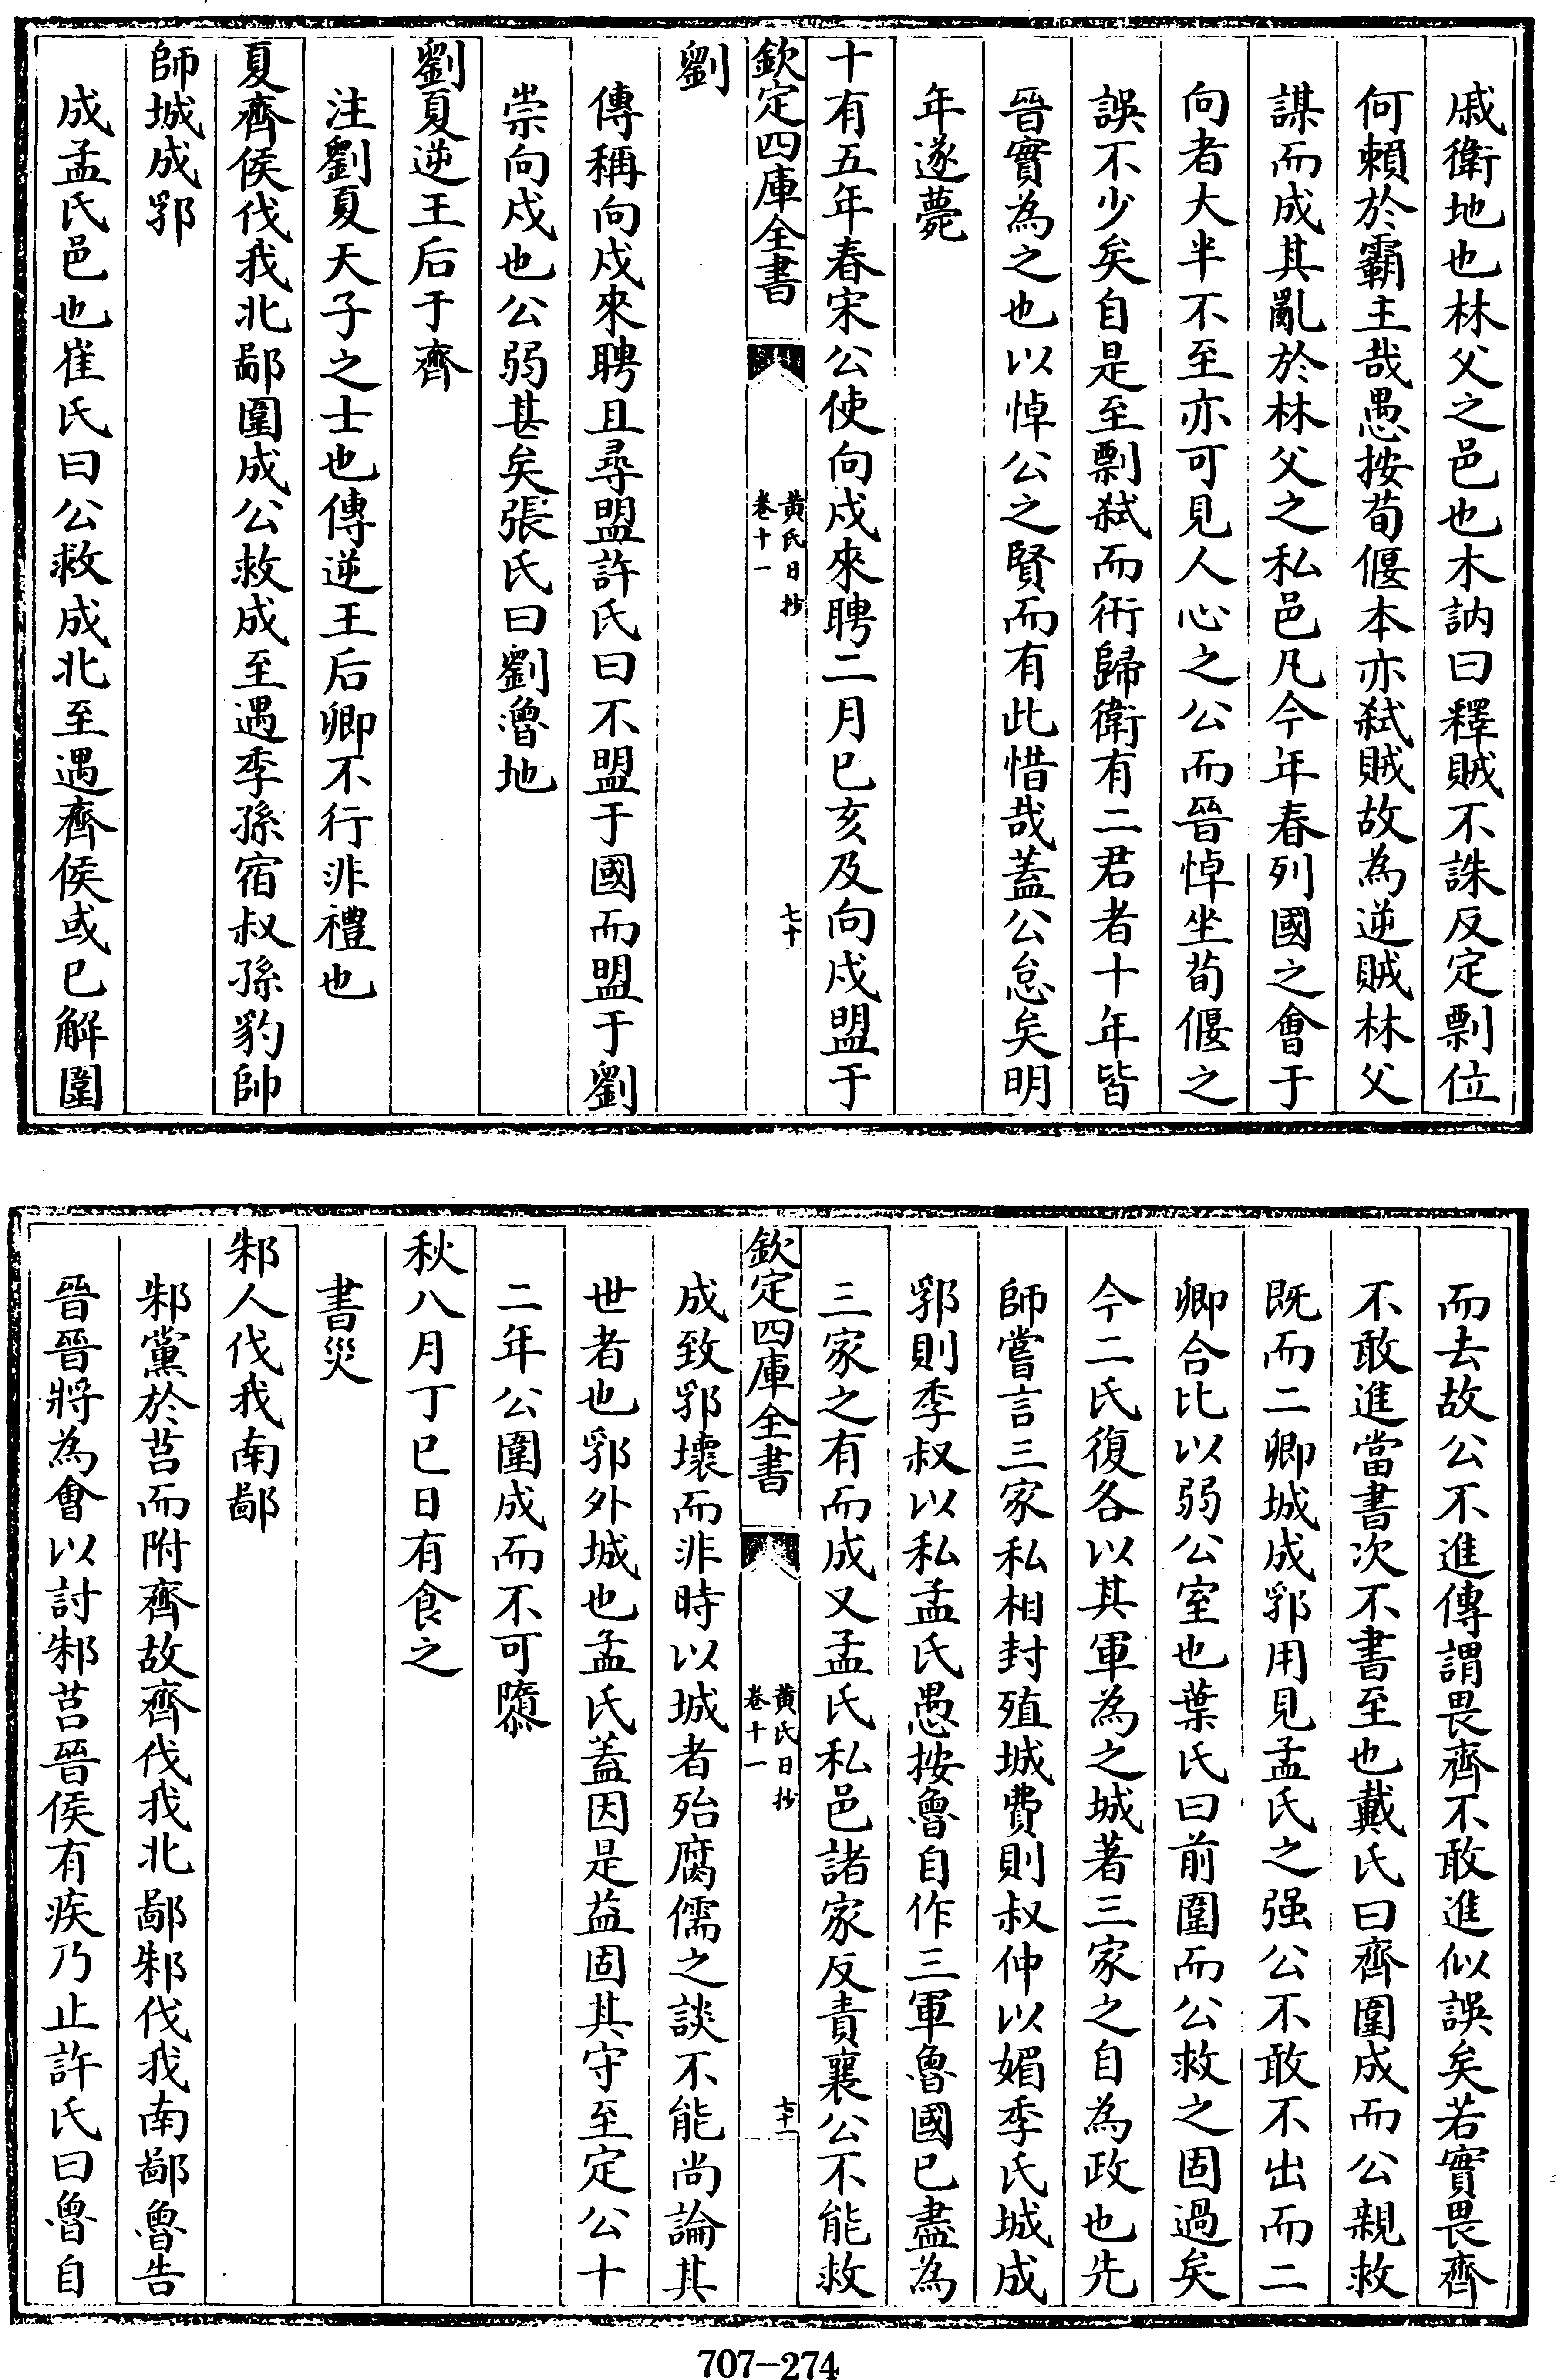 戚衛地也林父之邑也木訥曰釋賊不誅反定剽位
何賴於霸主哉愚按荀偃本亦弑賊故為逆賊林父
謀而成其亂於林父之私邑凡今年春列國之會于
向者大半不至亦可見人心之公而晉悼坐荀偃之
誤不少矣自是至剽弑而衎歸衛有二君者十年皆
晉實為之也以悼公之賢而有此惜哉蓋公怠矣明
年遂薨
十有五年春宋公使向戍來聘二月已亥及向戍盟于
欽定四庫全書
黃氏日抄
卷十一
七十
劉
傳稱向戍來聘且尋盟許氏曰不盟于國而盟于劉
崇向戍也公弱甚矣張氏曰劉魯地
劉夏逆王后于齊
注劉夏天子之士也傳逆王后卿不行非禮也
夏齊侯伐我北鄙圍成公救成至遇季孫宿叔孫豹帥
師城成郛
成孟氏邑也崔氏曰公救成北至遇齊侯或已解圍
而去故公不進傳謂畏齊不敢進似誤矣若實畏齊
不敢進當書次不書至也戴氏曰齊圍成而公親救
既而二卿城成郛用見孟氏之强公不敢不出而二
卿合比以弱公室也葉氏曰前圍而公救之固過矣
今二氏復各以其軍為之城著三家之自為政也先
師嘗言三家私相封殖城費則叔仲以媚季氏城成
郛則季叔以私孟氏愚按魯自作三軍魯國已盡為
三家之有而成又孟氏私邑諸家反責襄公不能救
欽定四庫全書
黃氏日抄
卷十一
七十一
成致郛壞而非時以城者殆腐儒之談不能尚論其
世者也郛外城也孟氏蓋因是益固其守至定公十
二年公圍成而不可隳
秋八月丁巳日有食之
書災
邾人伐我南鄙
邾黨於莒而附齊故齊伐我北鄙邾伐我南鄙魯告
晉晉將為會以討邾莒晉侯有疾乃止許氏曰魯自
707-274